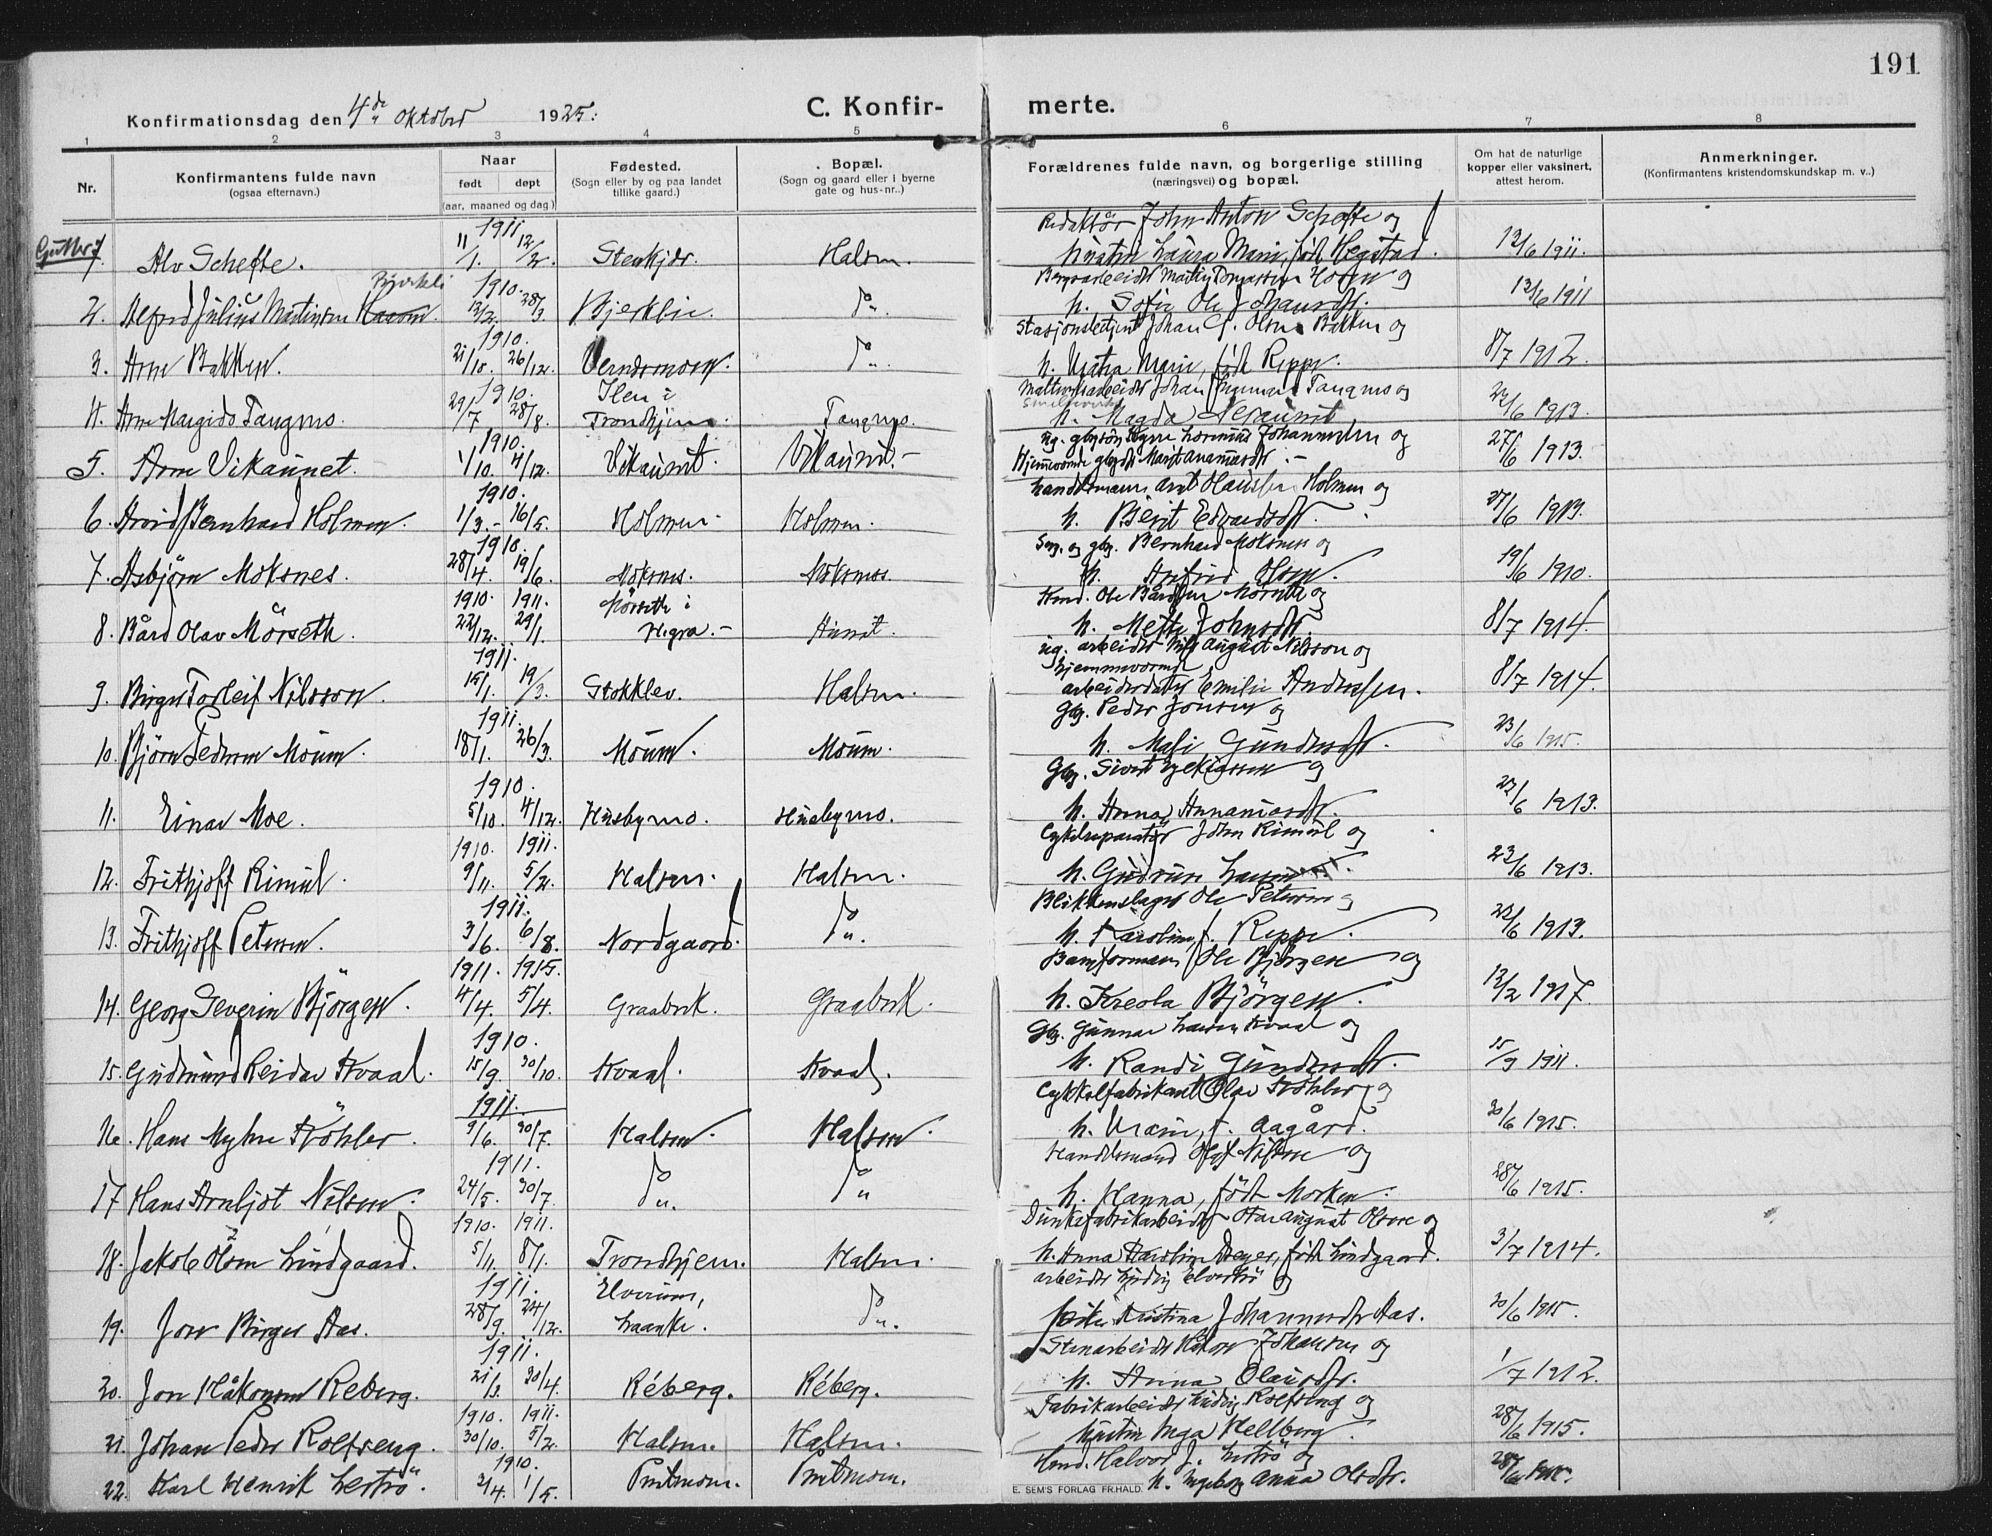 191
Konfirmationsdag den 4de oktober 1925.
C. Konfir- merte.
1 2 3 4 5 6 7 8
Nr.
Konfirmantens fulde navn
(ogsaa efternavn.)
Naar
født døpt
(aar, maaned og dag.)
Fødested.
(Sogn eller by og paa landet
tillike gaard.)
Bopæl.
(Sogn og gaard eller i byerne
gate og hus-nr..)
Forældrenes fulde navn, og borgerlige stilling
(næringsvei) og bopæl.
Om hat de naturlige
kopper eller vaksinert,
attest herom.
Anmerkninger.
(Konfirmantens kristendomskundskap m. v..)
Gutter
1. Alv Schefte. 1911 11/1. 12/2. Stenkjær. Halsen. Redaktør John Anton Schefte og
hustru Laura Marie, født Hegstad. 12/6 1911.
2. Alfred Julius Martinsen 1910. 12/2. 28/3. Bjerklie. do. 12/6 1911
h. Sofie Ole Johansdtr.
3. Arne Bakken. 1910. 21/10. 26/12. Verndemoen. do. Stasjonsbetjent Johan Olsen Bakken og
h. Marta Marie, født Reppe. 8/7 1912.
4. Arne Margido Tangmo. 1910. 29/7 28/8. Ilen i
Trondhjem. Tangmo. Johan Tangmo og
h. Magda 1913.
5. Arne Vikaunet. 1910. 1/10. 4/12. Vikaunet. Vikaunet. 27/6 1913.
6. Arvid Bernhard Holmen. 1910. 1/3. 16/5. Holmen. Holmen. Holmen og
h. Berit Edvardsdtr. 27/6 1913.
7. Asbjørn Moksnes. 1910. 28/4. 19/6. Moksnes. Moksnes. Bernhard Moksnes og
h. Olsen. 19/6 1910.
8. Bård Olav Mörseth. 1910. 1911. 22/12. 29/1. Mörseth i
Hegra. Auset. Ole Bårdsen Mörseth og
h. Mette Johnsdtr. 8/7 1914.
9. Birger Torleif Nilsson. 1911. 15/1. 19/3. Stokklev. Halsen. ug. arbeider Nils August Nilsson og
hjemmeværende
arbeiderdatter Emilie Andersen. 8/7 1914.
10. Björn Pedersen Moum. 1911. 18/1. 26/3. Moum. Moum. Gbr. Peder Jonsen og
h. Mali Gundersdtr. 23/6 1915.
11. Einar Moe. 1910. 5/10. 4/12. Husbymo. Husbymo. Gbr. Sivert og
h. Anna 1913.
12. Frithjoff Rimul. 1910. 1911. 9/11. 5/2. Halsen. Halsen. Cykelreparatör John Rimul og
h. Gudrun 23/6 1913.
13. Frithjoff Petersen. 1911. 3/6. 6/8. Nordgaard. do. Blikkenslager Ole Petersen og
h. Karoline, f. Reppe. 1913.
14. Georg Severin Björgen. 1911. 1915. 4/4. 5/4. Graabrek. Graabrek. Baneformann Ole Björgen og
h. Kreola Björgen. 12/2 1917.
15. Gudmund Reidar Kvaal. 1910. 15/9. 30/10. Kvaal. Kvaal. Gbr. Gunnar Larsen Kvaal og
h. Randi Gundersdtr. 15/9 1911.
16. Hans Myhre Köhler. 1911. 9/6. 30/7. Halsen. Halsen. Cykkelfabrikant Olav Köhler og
h. Marie, f. Aagård. 30/6 1915.
17 Hans Arnljot Nilsen. 1911. 24/5. 30/7. do. do. Handelsmand Olaf Nilsen og
h. Hanna, født Morken. 28/6 1915.
18. Jakob Olsen Lindgaard. 1910. 1911. 5/11. 8/1. Trondhjem. Halsen. August Olsen og
h. Anna Karoline Meyer, født Lindgaard. 3/7 1914.
19. Jon Birger Aas. 1911. 28/9. 24/12. Elverum,
Laanke. do. arbeider Ludvig og
pike Kristina Johannesdtr Aas. 30/6 1915.
20. Jon Håkonsen Reberg. 1911. 21/3. 30/4. Réberg. Réberg. Stenarbeider Håkon Johansen og
h. Anna Olausdtr. 1/7 1912.
21. Johan Peder Rolfseng. 1910. 1911. 30/10. 5/2. Halsen. Halsen. Fabrikarbeider Ludvig Rolfseng og
hustru Inga Hellberg. 28/6 1915.
22. Karl Henrik Lerströ. 1910. 3/4. 1/5. Halvor J. og
h. Ingeborg Anna Olsdtr. 28/6
E. SEM'S FORLAG FR.HALD.